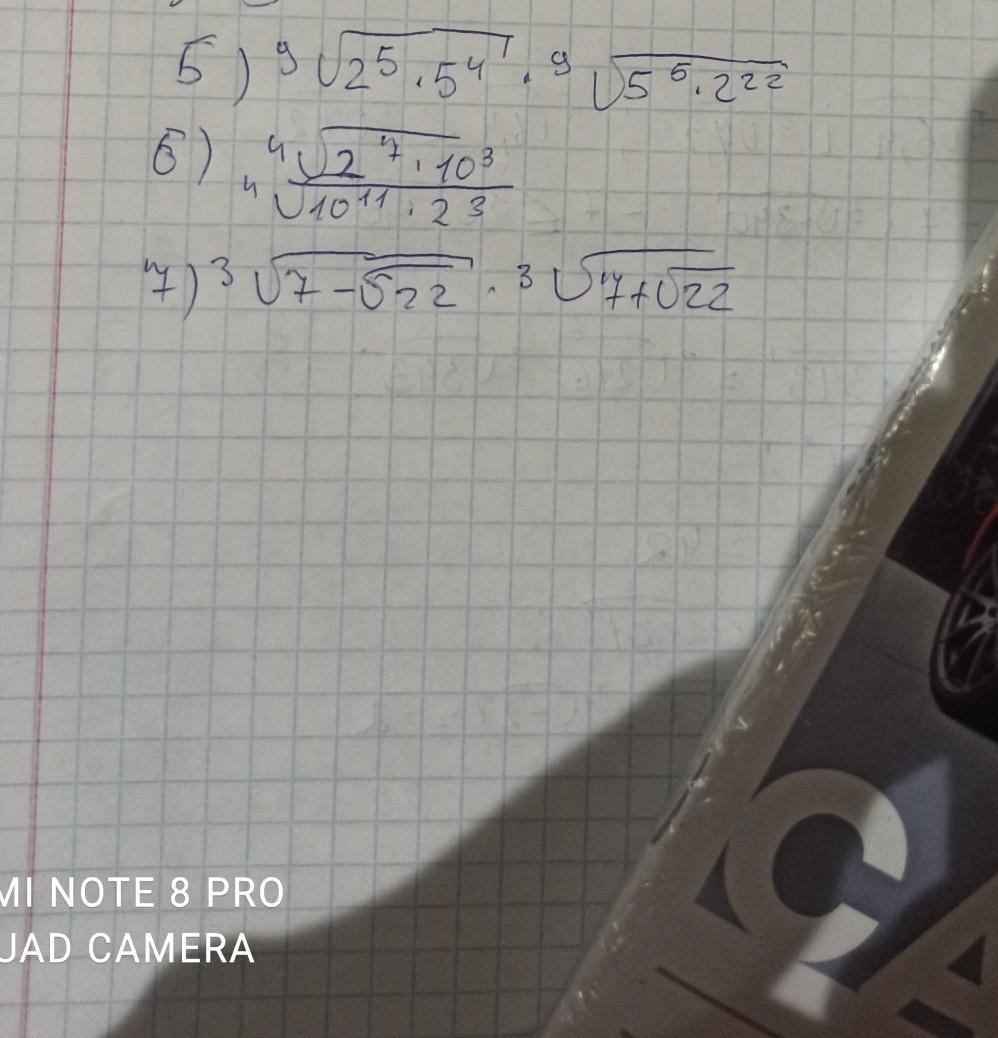 5) ⁹√(2⁵ · 5⁴) · ⁹√(5⁵ · 2²²)
6) ⁴√(2⁷ · 10³) / ⁴√(10¹¹ · 2³)
7) ³√(7 - √22) · ³√(7 + √22)
MI NOTE 8 PRO
UAD CAMERA
CA